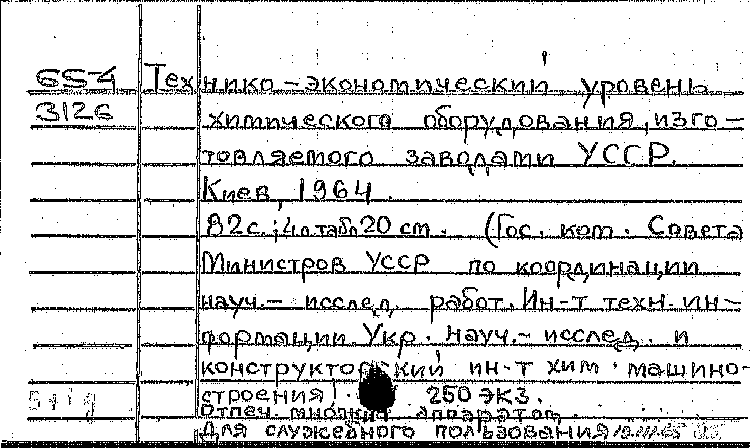 65-4 Технико-экономический уровень
3126 химического оборудования, изго-
товляемого заводами УССР.
Киев, 1964.
82с.; 4л.табл 20 см. (Гос. ком. Совета
Министров УССР по координации
науч.- исслед. работ. Ин-т техн. ин-
формации. Укр. науч.- исслед. и
конструкторский ин-т хим. машино-
строения). 250 экз.
Отпеч. множит. аппаратом.
Для служебного пользования